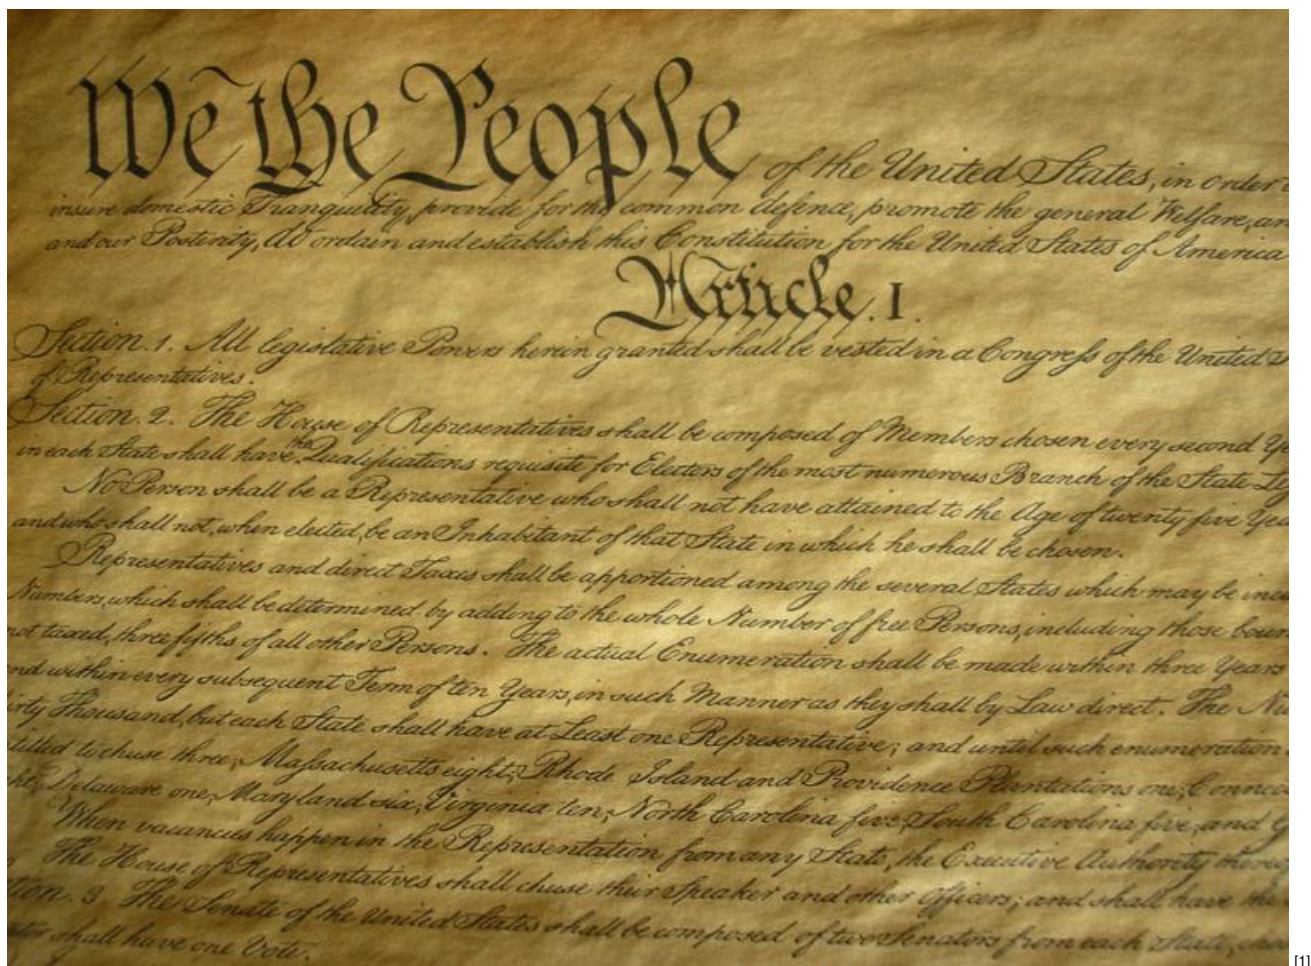 We the People of the United States, in order
insure domestic Tranquility, provide for the common defence, promote the general Welfare, an
and our Posterity, do ordain and establish this Constitution for the United States of America
Article. I.
Section. 1. All legislative Powers herein granted shall be vested in a Congress of the United S
of Representatives.
Section. 2. The House of Representatives shall be composed of Members chosen every second Ye
in each State shall have the Qualifications requisite for Electors of the most numerous Branch of the State Leg
No Person shall be a Representative who shall not have attained to the Age of twenty five Yea
and who shall not, when elected, be an Inhabitant of that State in which he shall be chosen.
Representatives and direct Taxes shall be apportioned among the several States which may be incl
Numbers, which shall be determined by adding to the whole Number of free Persons, including those boun
not taxed, three fifths of all other Persons. The actual Enumeration shall be made within three Years
nd within every subsequent Term of ten Years, in such Manner as they shall by Law direct. The Nu
irty Thousand, but each State shall have at Least one Representative; and until such enumeration
titled to chuse three, Massachusetts eight, Rhode Island and Providence Plantations one, Connec
ght, Delaware one, Maryland six, Virginia ten, North Carolina five, South Carolina five, and G
When vacancies happen in the Representation from any State, the Executive Authority thereo
The House of Representatives shall chuse their Speaker and other Officers; and shall have the
tion. 3. The Senate of the United States shall be composed of two Senators from each State, chos
ator shall have one Vote.
[1]